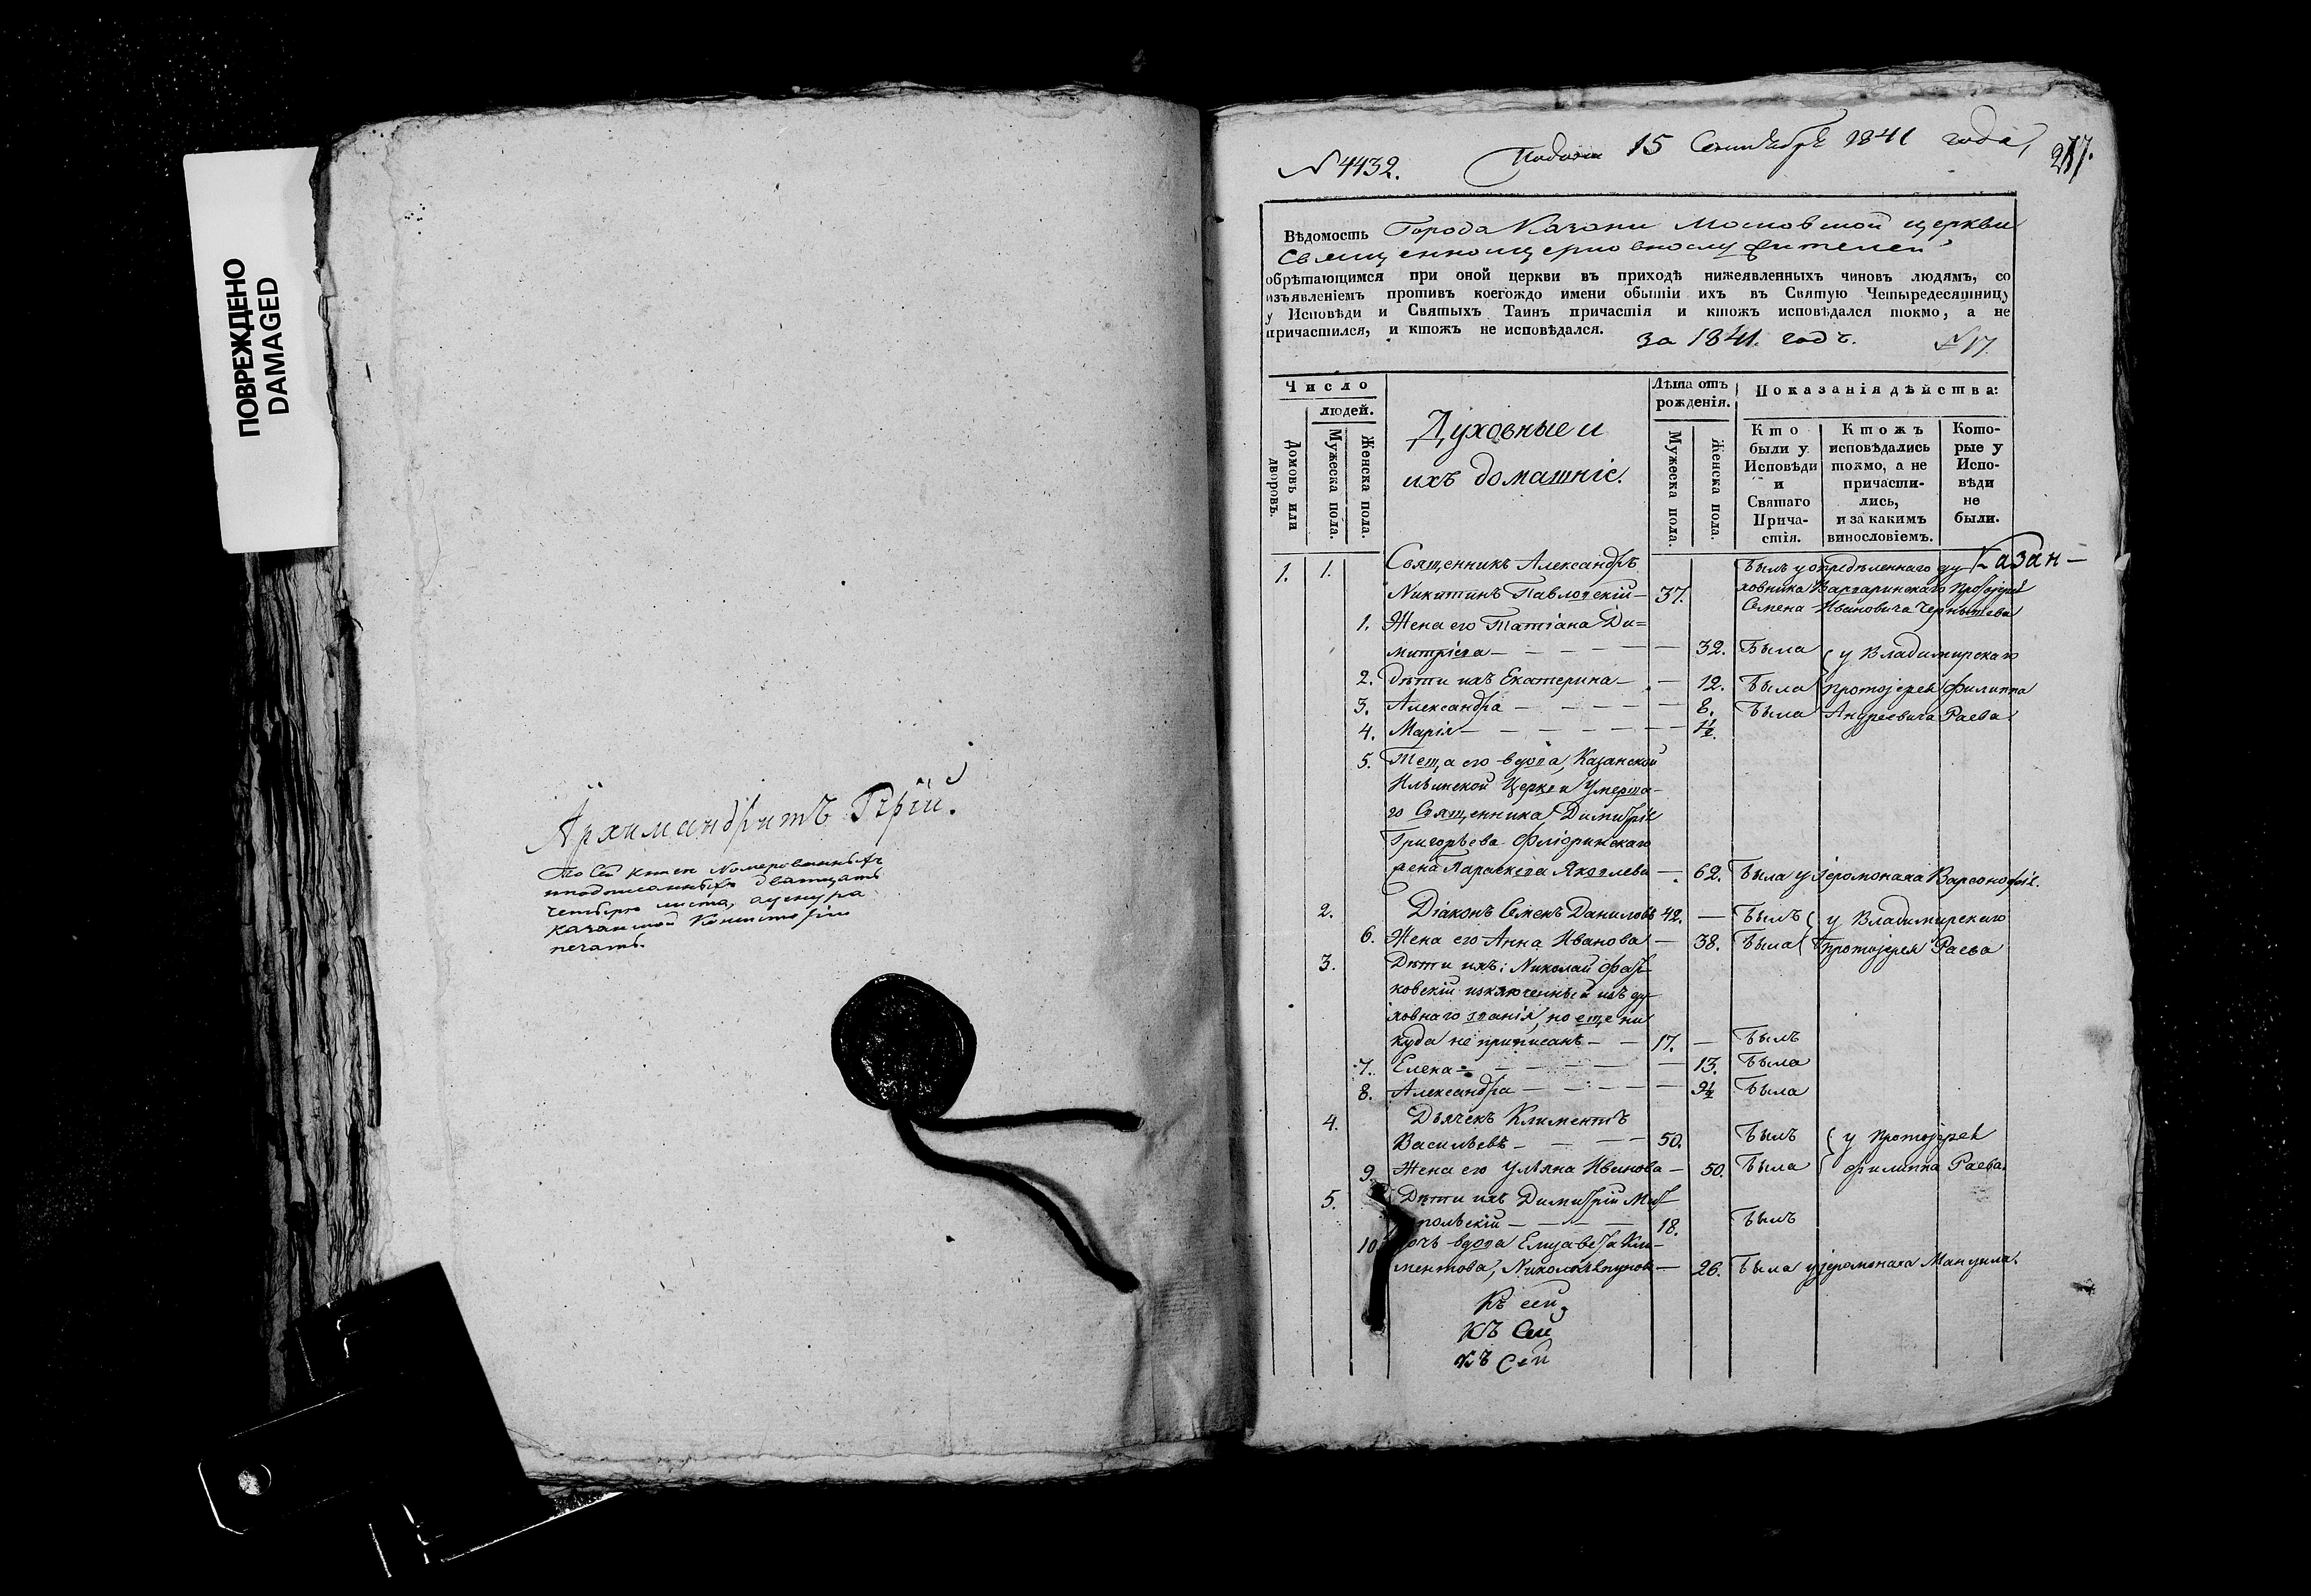 ПОВРЕЖДЕНО
DAMAGED
Архимандритъ
По сей книге номерованныхъ
и подписанныхъ дватцать
четыре листа,
Казанской Консисторіи
печать.
N 4432.
15 Сентября 1841 года,
217.
Вѣдомость Города Казани Московской церкви
Священноцерковнослужителей
обрѣтающимся при оной церкви въ приходѣ нижеявленныхъ чиновъ людямъ, со
изъявленіемъ противъ коегождо имени обытіи ихъ въ Святую Четыредесятницу
у Исповѣди и Святыхъ Таинъ причастія и ктожъ исповѣдался токмо, а не
причастился, и ктожъ не исповѣдался.
за 1841. годъ. N 17.
Число
людей.
Домовъ или дворовъ.
Мужеска пола.
Женска пола.
Духовные и
ихъ домашніе.
Лѣта отъ
рожденія.
Мужеска пола.
Женска пола.
Показанія дѣйства:
Кто
были у
Исповѣди
и
Святаго
Прича-
стія.
Ктожъ
исповѣдались
токмо, а не
причасти-
лись,
и за какимъ
винословіемъ.
Кото-
рые у
Испо-
вѣди
не
были.
1. 1. Священникъ Александръ Былъ у опредѣленнаго ду Казан-
Никитинъ Павловскій 37. ховника Варваринскаго Протоіерея
Семена Ивановича Чернышева
1. Жена его Татіана Ди=
митріева — 32. Была у Владимирскаго
2. Дѣти ихъ Екатерина — 12. Была протоіерея Филиппа
3. Александра — 8. Была Андреевича Раева.
4. Марія — 1½.
5. Теща его вдова, Казанской
Ильинской Церкви умерша-
го Священника Димитрія
Григорьева
жена Параскева Яковлева — 62. Была у іеромонаха Варсонофія.
2. Діаконъ Семенъ Даниловъ 42. — Былъ у Владимирскаго
6. Жена его Анна Иванова — 38. Была протоіерея Раева
3. Дѣти ихъ: Николай Фар-
ковскій изключенный изъ ду-
ховнаго званія, но еще ни
куда не приписанъ — 17. — Былъ
7. Елена — 13. Была
8. Александра — 9½ Была
4. Дьячекъ Климентъ
Васильевъ — 50. Былъ у протоіерея
9. Жена его Ульяна Иванова — 50. Была Филиппа Раева.
5. Дѣти ихъ Димитрій
польскій — 18. Былъ
10 вдова Елизавета Кли-
ментова, — 26. Была у іеромонаха Мануила.
Къ сей
Къ Сей
Къ Сей